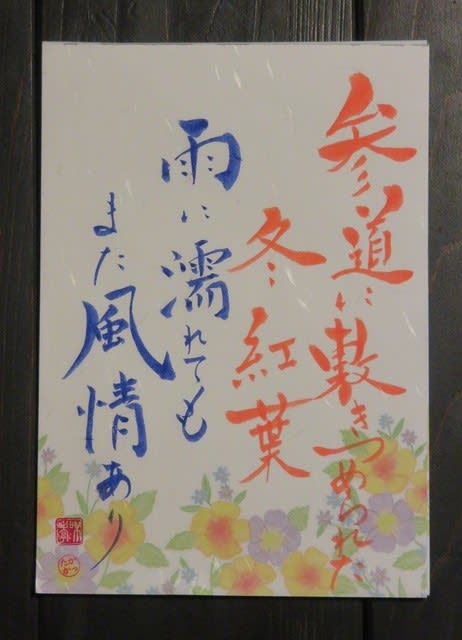 参道に敷きつめられた
冬紅葉
雨に濡れても
また風情あり